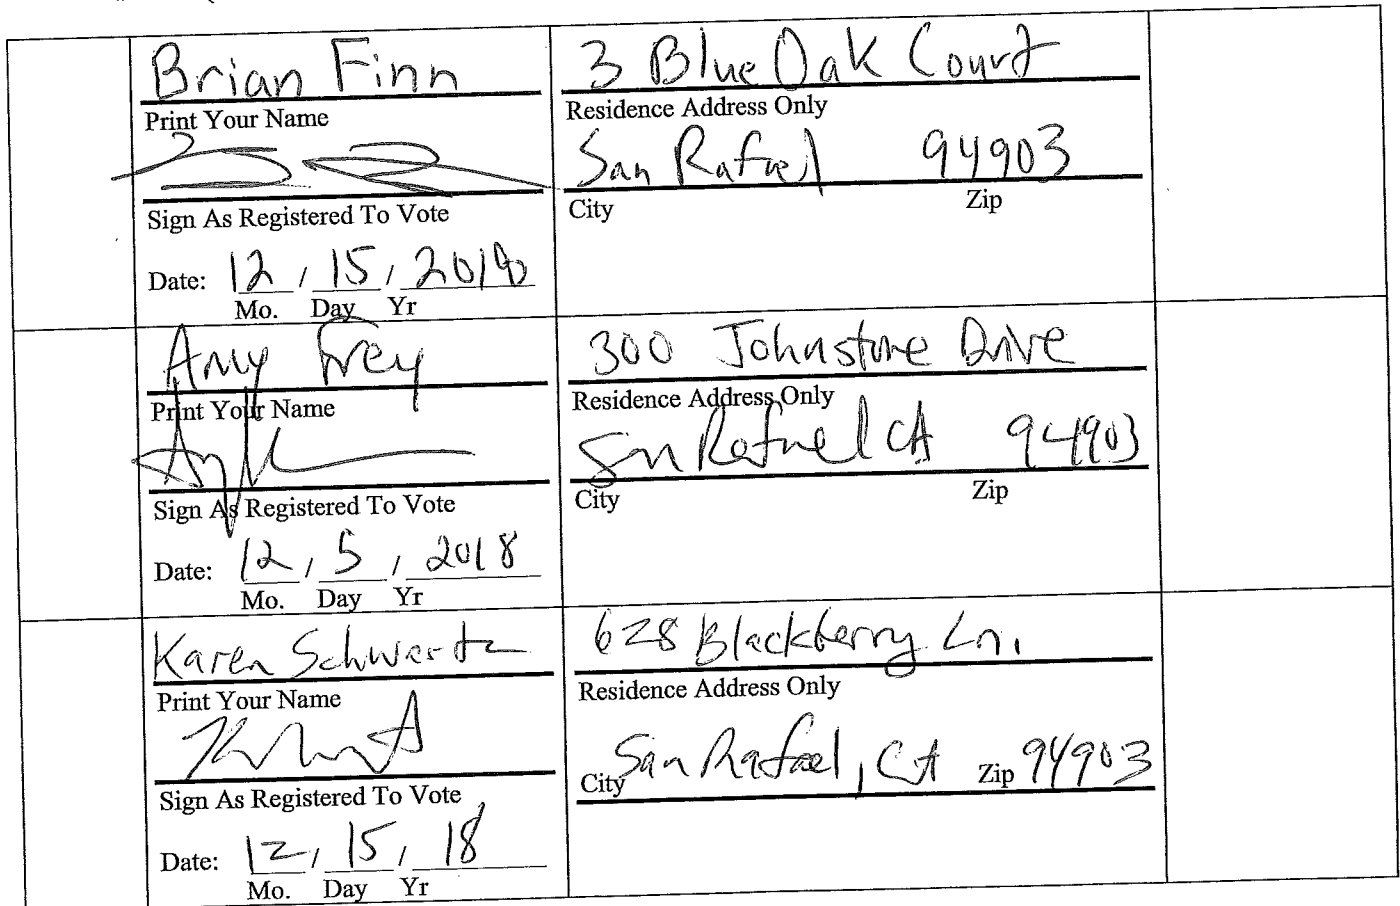 Brian Finn
Print Your Name
Sign As Registered To Vote
Date: 12 / 15 / 2018
Mo. Day Yr
3 Blue Oak Court
Residence Address Only
San Rafael 94903
City Zip
Amy Frey
Print Your Name
Sign As Registered To Vote
Date: 12 / 5 / 2018
Mo. Day Yr
300 Johnstone Drive
Residence Address Only
San Rafael CA 94903
City Zip
Karen Schwartz
Print Your Name
Sign As Registered To Vote
Date: 12 / 15 / 18
Mo. Day Yr
628 Blackberry Ln.
Residence Address Only
City San Rafael, CA Zip 94903